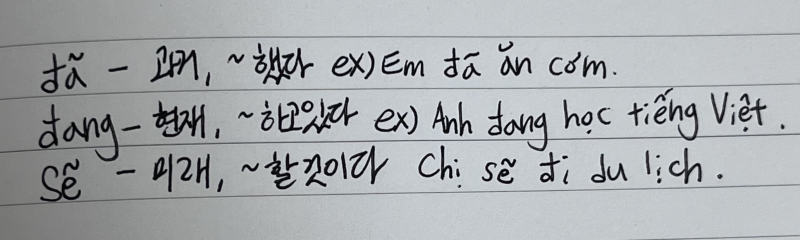 đã - 과거, ~했다 ex) Em đã ăn cơm.
đang - 현재, ~하고있다 ex) Anh đang học tiếng Việt.
Sẽ - 미래, ~할것이다 Chị sẽ đi du lịch.